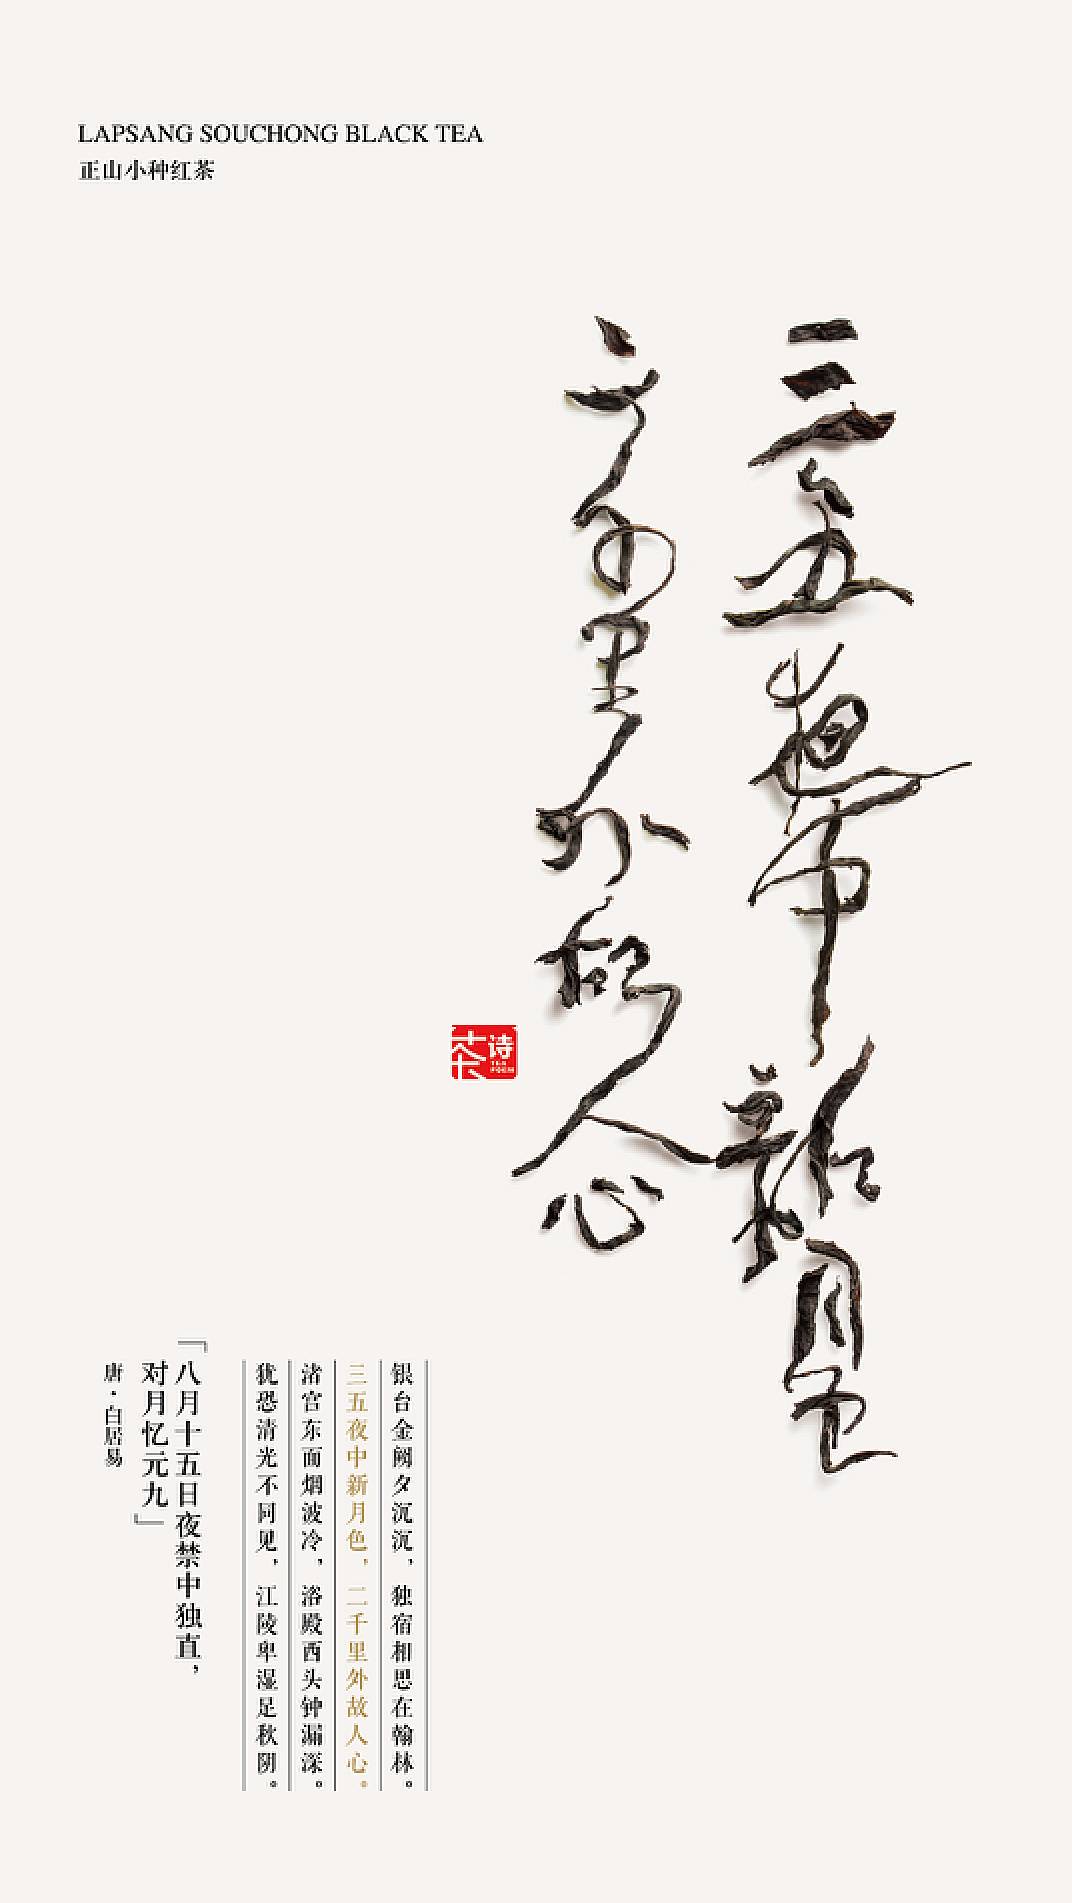 LAPSANG SOUCHONG BLACK TEA
正山小种红茶
三五夜中新月色
二千里外故人心
茶诗
银台金阙夕沉沉，独宿相思在翰林。
三五夜中新月色，二千里外故人心。
渚宫东面烟波冷，浴殿西头钟漏深。
犹恐清光不同见，江陵卑湿足秋阴。
「八月十五日夜禁中独直，
对月忆元九」
唐·白居易